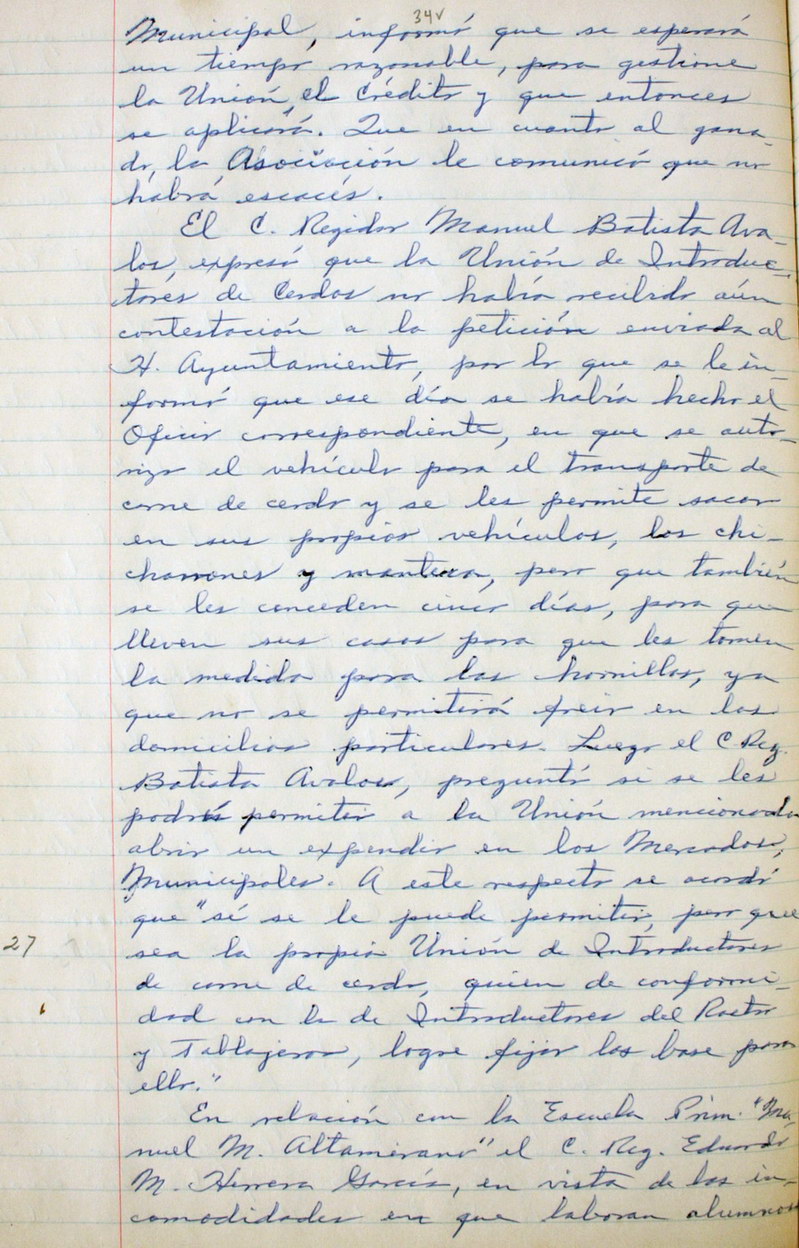 34v
Municipal, informó que se esperará
un tiempo razonable, para gestione
la Unión, el Crédito y que entonces
se aplicará. Que en cuanto al gana-
do, la Asociación le comunicó que no
habrá escacés.
El C. Regidor Manuel Batista Ava-
los, expresó que la Unión de Introduc-
tores de Cerdos no había recibido aún
contestación a la petición enviada al
H. Ayuntamiento, por lo que se le in-
formó que ese día se había hecho el
Oficio correspondiente, en que se auto-
riza el vehículo para el transporte de
carne de cerdo y se les permite sacar
en sus propios vehículos, los chi-
charrones y manteca, pero que también
se les conceden cinco días, para que
lleven sus casos para que les tomen
la medida para las hornillas, ya
que no se permitirá freir en los
domicilios particulares. Luego el C. Reg.
Batista Avalos, preguntó si se les
podrá permitir a la Unión mencionada
abrir un expendio en los Mercados,
Municipales. A este respecto se acordó
que "sí se le puede permitir, pero que
27 sea la propia Unión de Introductores
de carne de cerdo, quien de conformi-
dad con la de Introductores del Rastro
y Tablajeros, logre fijar las base para
ello."
En relación con la Escuela Prim. "Ma-
nuel M. Altamirano" el C. Reg. Eduardo
M. Herrera García, en vista de las in-
comodidades en que laboran alumnos